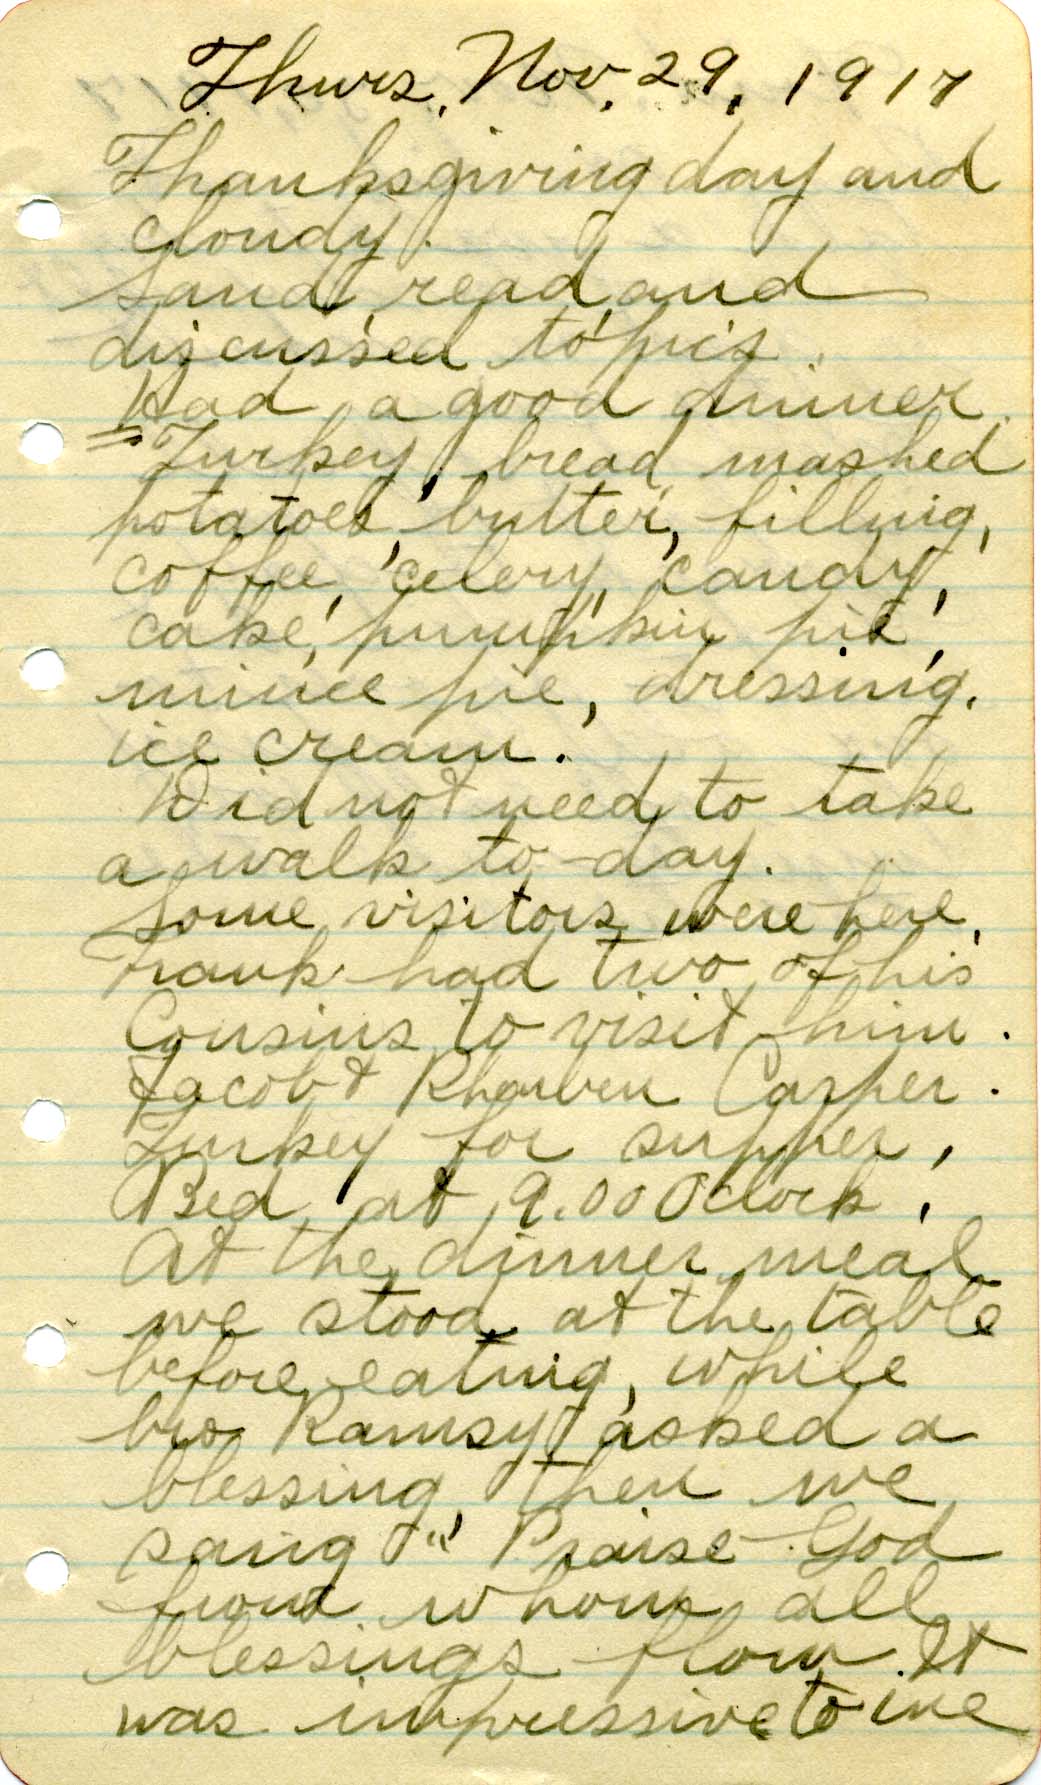 Thurs. Nov. 29, 1917
Thanksgiving day and
cloudy.
Sand, read, and
discussed topics.
Had a good dinner.
= Turkey, bread, mashed
potatoes, butter, filling,
coffee, celery, candy,
cake, pumpkin pie,
mince pie, dressing.
ice cream.
Did not need to take
a walk to-day.
Some visitors were here.
Frank had two of his
Cousins to visit him.
Jacob & Casper.
Turkey for supper.
Bed at 9.00 Oclock.
At the dinner meal
we stood at the table
before eating, while
bro Ramsy asked a
blessing, then we
sang "Praise God
from whom all
blessings flow. It
was impressive to me